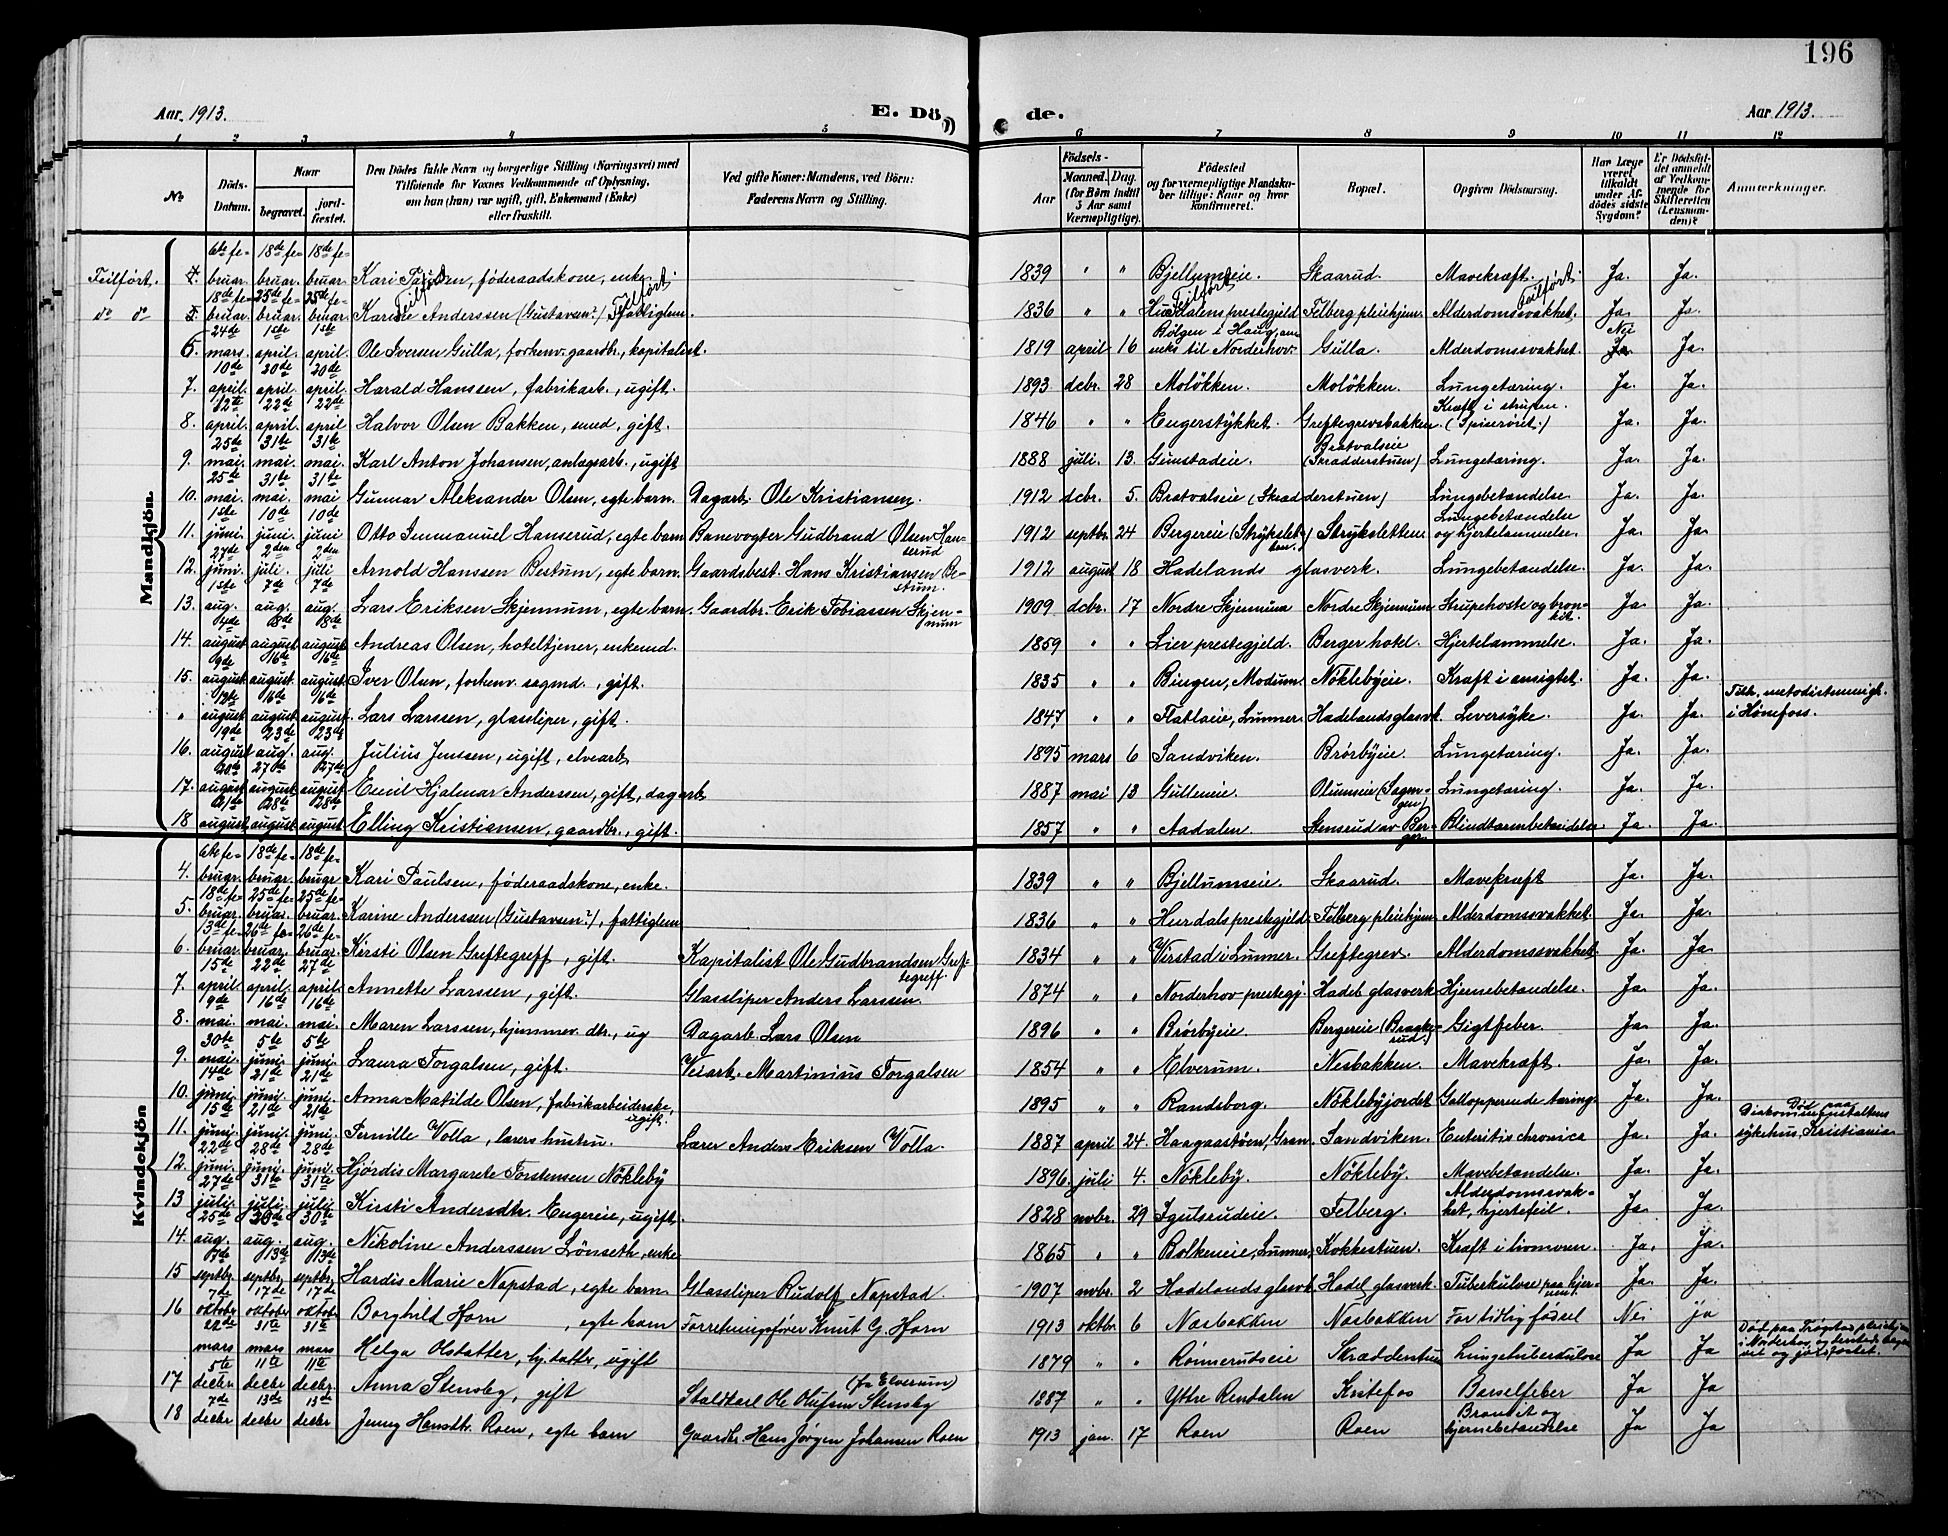 196
Aar. 1913. E. Dö de. Aar 1913.
1 2 3 4 5 6 7 8 9 10 11 12
№ Döds-Datum. Naar begravet. jordfæstet. Den Dödes fulde Navn og borgerlige Stilling (Næringsvei) med Tilføiende for Voxnes Vedkommende af Oplysning, om han (hun) var ugift, gift, Enkemand (Enke) eller fraskilt. Ved gifte Koner: Mandens, ved Börn: Faderens Navn og Stilling. Aar Födsels- Maaned. Dag. (for Börn indtil 5 Aar samt Værnepligtige). Födested og for værnepligtige Mandskaber tillige: Naar og hvor konfirmeret. Bopæl. Opgiven Dödsaarsag. Har Læge været tilkaldt under Afdödes sidste Sygdom? Er Dödsfaldet anmeldt af Vedkommende for Skifteretten (Lensmanden)? Anmærkninger.
Mandkjön.
Feilført. 4. 6te februar. 18de februar. 18de februar. Kari Paulsen, føderaadskone, enke. Feilført 1839 " " Bjellumeie. Skaarud. Mavekræft. Ja. Ja.
do do 5. 18de februar. 25de februar. 25de februar. Karine Anderssen (Gustavsen?) Fattiglem. Feilført 1836 " " Hurdalens prestegjeld Felberg pleiehjem. Alderdomssvakhet. Feilført Ja. Ja.
6. 24de mars. 1ste april. 1ste april. Ole Iversen Gulla, forhenv. gaardbr., kapitalist. 1819 april 16 Bølgen i Haug, anneks til Norderhov. Gulla. Alderdomssvakhet. Nei Ja. Ja.
7. 10de april. 20de april. 20de april. Harald Hanssen, fabrikarb., ugift. 1893 dcbr. 28 Moløkken. Moløkken. Lungetæring. Ja. Ja.
8. 12te april. 22de april. 22de april. Halvor Olsen Bakken, smed, gift. 1846 " " Engerstykket. Greftegrevsbakken. Kræft i strupen. (Spiserøret.) Ja. Ja.
9. 25de mai. 31te mai. 31te mai. Karl Anton Johansen, anlægsarb., ugift 1888 juli. 13. Gunstadeie. Bratvalseie (Skradderstuen) Lungetæring. Ja. Ja.
10. 25de mai. 31te mai. 31te mai Gunnar Aleksander Olsen, egte barn. Dagarb. Ole Kristiansen. 1912 dcbr. 5. Bratvalseie (Skradderstuen) Lungebetændelse. Ja. Ja.
11. 1ste juni. 10de juni. 10de juni Otto Immanuel Hanserud, egte barn Banevogter Gudbrand Olsen Hanserud 1912 septbr. 24 Bergereie (Strykeletten.) Strykesletten. Lungebetændelse og hjertelammelse. Ja. Ja.
12. 27de juni. 2den juli. 2den juli Arnold Hanssen Bestum, egte barn. Gaardsbest. Hans Kristiansen Bestum. 1912 august 18 Hadelands glasverk. Lungebetændelse. Ja. Ja.
13. 1ste aug. 7de aug. 7de aug. Lars Eriksen Skjennum, egte barn. Gaardbr. Erik Tobiassen Skjennum 1909 dcbr. 17 Nordre Skjennum Nordre Skjennum Strupehoste og bronkit. Ja. Ja.
14. 4de august 8de august 8de august Andreas Olsen, hoteltjener, enkemd. 1859 " " Lier prestegjeld. Berger hotel. Hjertelammelse. Ja. Ja.
15. 9de august. 16de august 16de august. Iver Olsen, forhenv. sagmd., gift. 1835 " " Bingen, Modum. Nöklebyeie. Kræft i ansigtet. Ja. Ja.
" 12te august 16de august 16de august. Lars Larssen, glassliper, gift. 1847 " " Flatlaeie, Lunner. Hadelandsglasvk. Leversyke. Ja. Ja. Tilh. metodistmenigh. i Hönefoss.
16. 19de august 23de aug. 23de aug. Julius Jenssen, ugift, elvearb. 1895 mars 6 Sandviken. Brörbyeie. Lungetæring. Ja. Ja.
17. 20de august 27de august 27de august Emil Hjalmar Anderssen, gift, dagarb. 1887 mai 13 Gulleneie. Olumseie (Sagengen) Lungetæring. Ja. Ja.
18 21de august 28de august 28de august Elling Kristiansen, gaardbr., gift. 1857 " " Aadalen. Stensrud av Bergeren Blindtarmbetændelse. Ja. Ja.
Kvindekjön
4. 6te februar. 18de februar. 18de februar Kari Paulsen, føderaadskone, enke. 1839 " " Bjellumseie. Skaarud. Mavekræft Ja. Ja.
5. 18de februar. 25de februar. 25de februar. Karine Anderssen (Gustavsen?), fattiglem 1836 " " Hurdals prestegjeld. Felberg pleiehjem Alderdomssvakhet. Ja. Ja.
6. 13de februar. 26de februar. 26de februar. Kirsti Olsen Greftegreff, gift. Kapitalist Ole Gudbrandsen Greftegreff. 1834 " " Virstad i Lunner. Greftegrev. Alderdomssvakhet. Ja. Ja.
7. 15de april. 22de april. 27de april. Annette Larssen, gift. Glassliper Anders Larssen. 1874 " " Norderhov prestegj. Hadel. glasverk Hjernebetændelse. Ja. Ja.
8. 9de mai. 16de mai. 16de mai. Maren Larssen, hjemmev. dtr., ug Dagarb. Lars Olsen 1896 " " Brörbyeie. Bergereie (Bragkerud.) Gigtfeber. Ja. Ja.
9. 30te mai. 5te juni. 5te juni. Laura Torgalsen, gift. Veiarb. Martinius Torgalsen 1854 " " Elverum. Nesbakken. Mavekræft. Ja. Ja.
10. 14de juni. 21de juni. 21de juni. Anna Matilde Olsen, fabrikarbeiderske, ugift. 1895 " " Randsborg. Nöklebyjordet Galopperende tæring. Ja. Ja.
11. 15de juni. 21de juni. 21de juni. Pernille Volla, lærers hustru. Lærer Anders Eriksen Volla. 1887 april 24. Haagaastöen, Gran. Sandviken. Enteritis chronica Ja. Ja. Död paa Diakonisseanstaltens sykehus, Kristiania
12. 22de juni. 28de juni. 28de juni. Hjördis Margarete Torstensen Nökleby 1896. juli 4. Nökleby. Nökleby. Mavebetændelse. Ja. Ja.
13 27de juli. 31te juli. 31te juli. Kirsti Andersdtr. Engereie, ugift. 1828 nvbr. 29 Igulsrudeie. Felberg. Alderdomssvakhet, hjertefeil. Ja. Ja.
14. 25de aug. 30de aug. 30te aug. Nikoline Anderssen Lönseth, enke 1865 " " Bolkeneie, Lunner, Kokkestuen. Kræft i livmoren. Ja. Ja.
15 7de septbr. 13de septbr. 13de septbr. Hardis Marie Napstad, egte barn. Glassliper Rudolf Napstad. 1907 nvbr. 2 Hadelands glasvk Hadel. glasverk Tuberkulose paa hjernen. Ja. Ja.
16 7de oktobr 17de oktobr 17de oktobr Borghild Horn, egte barn Forretningsfører Knut G. Horn 1913 oktbr. 6 Næsbakken Næsbakken For tidlig födsel Nei ja
22de mars 31te mars 31te mars Helga Olstatter, hj. datter, ugift 1879 " " Rönnerudseie Skræddestuen Lungetuberkulose Ja Ja
17 5te decbr. 11te decbr 11te decbr. Anna Stensby, gift Staldkarl Ole Olufsen Stensby (fra Elverum) 1887 " " Yttre Rendalen Kistefos Barselfeber Ja Ja
18 7de decbr 13de decbr 13de decbr Jenny Hansdtr. Roen, egte barn Gaardbr. Hans Jørgen Johansen Roen 1913 jan. 17 Roen Roen Bronkit og hjernebetændelse Ja Ja